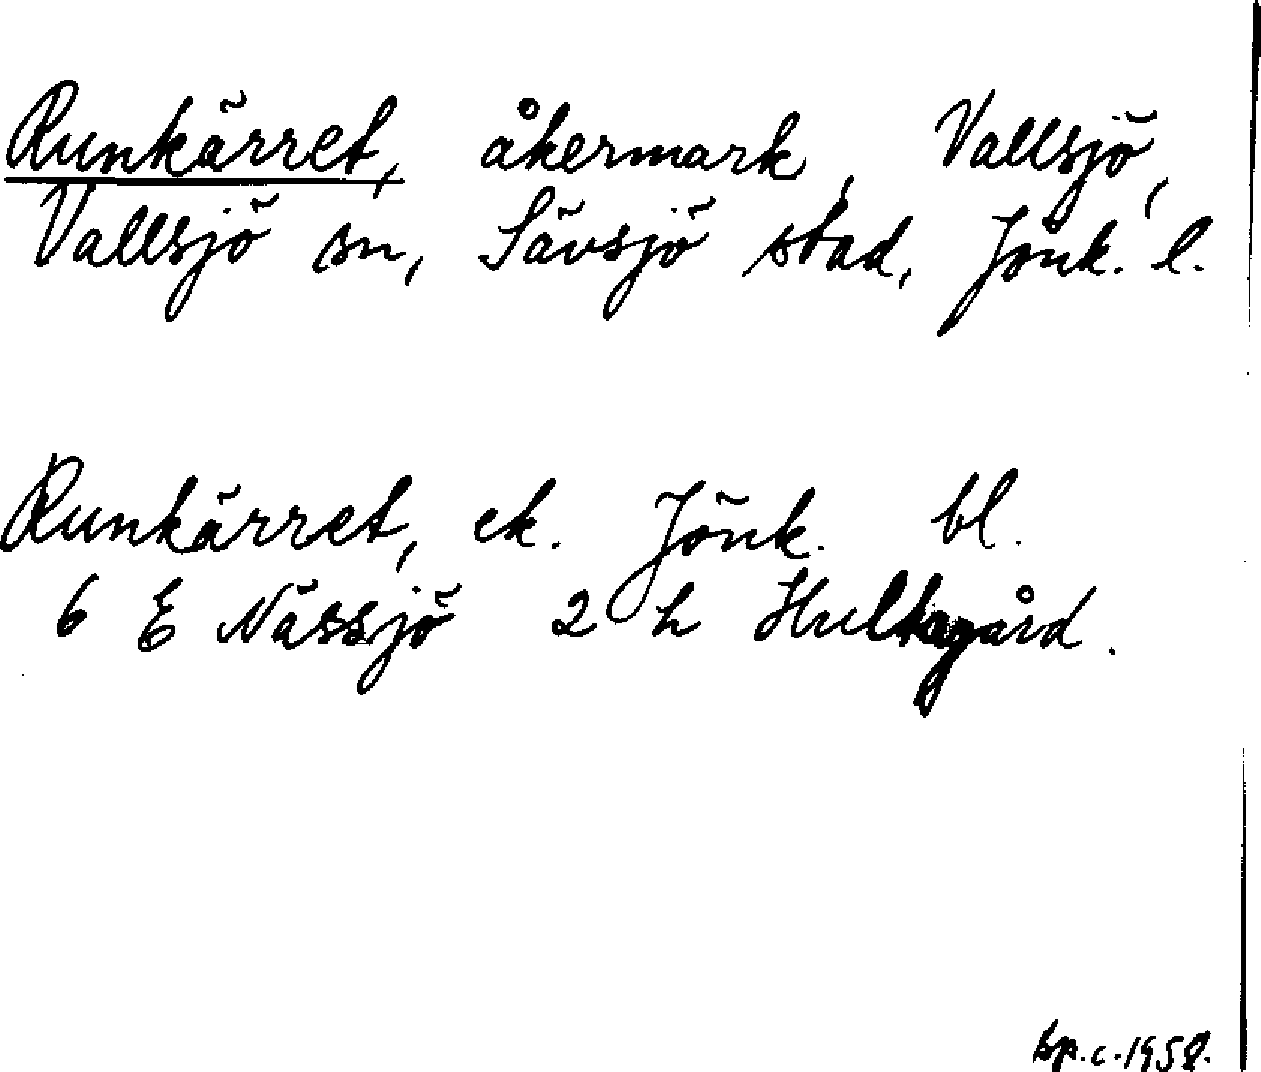 Runkärret, åkermark, Vallsjö,
Vallsjö sn, Sävsjö stad, Jönk. l.
Runkärret, ek. Jönk. bl.
6 E Nässjö 2 h Hultagård.
bp. c. 1958.